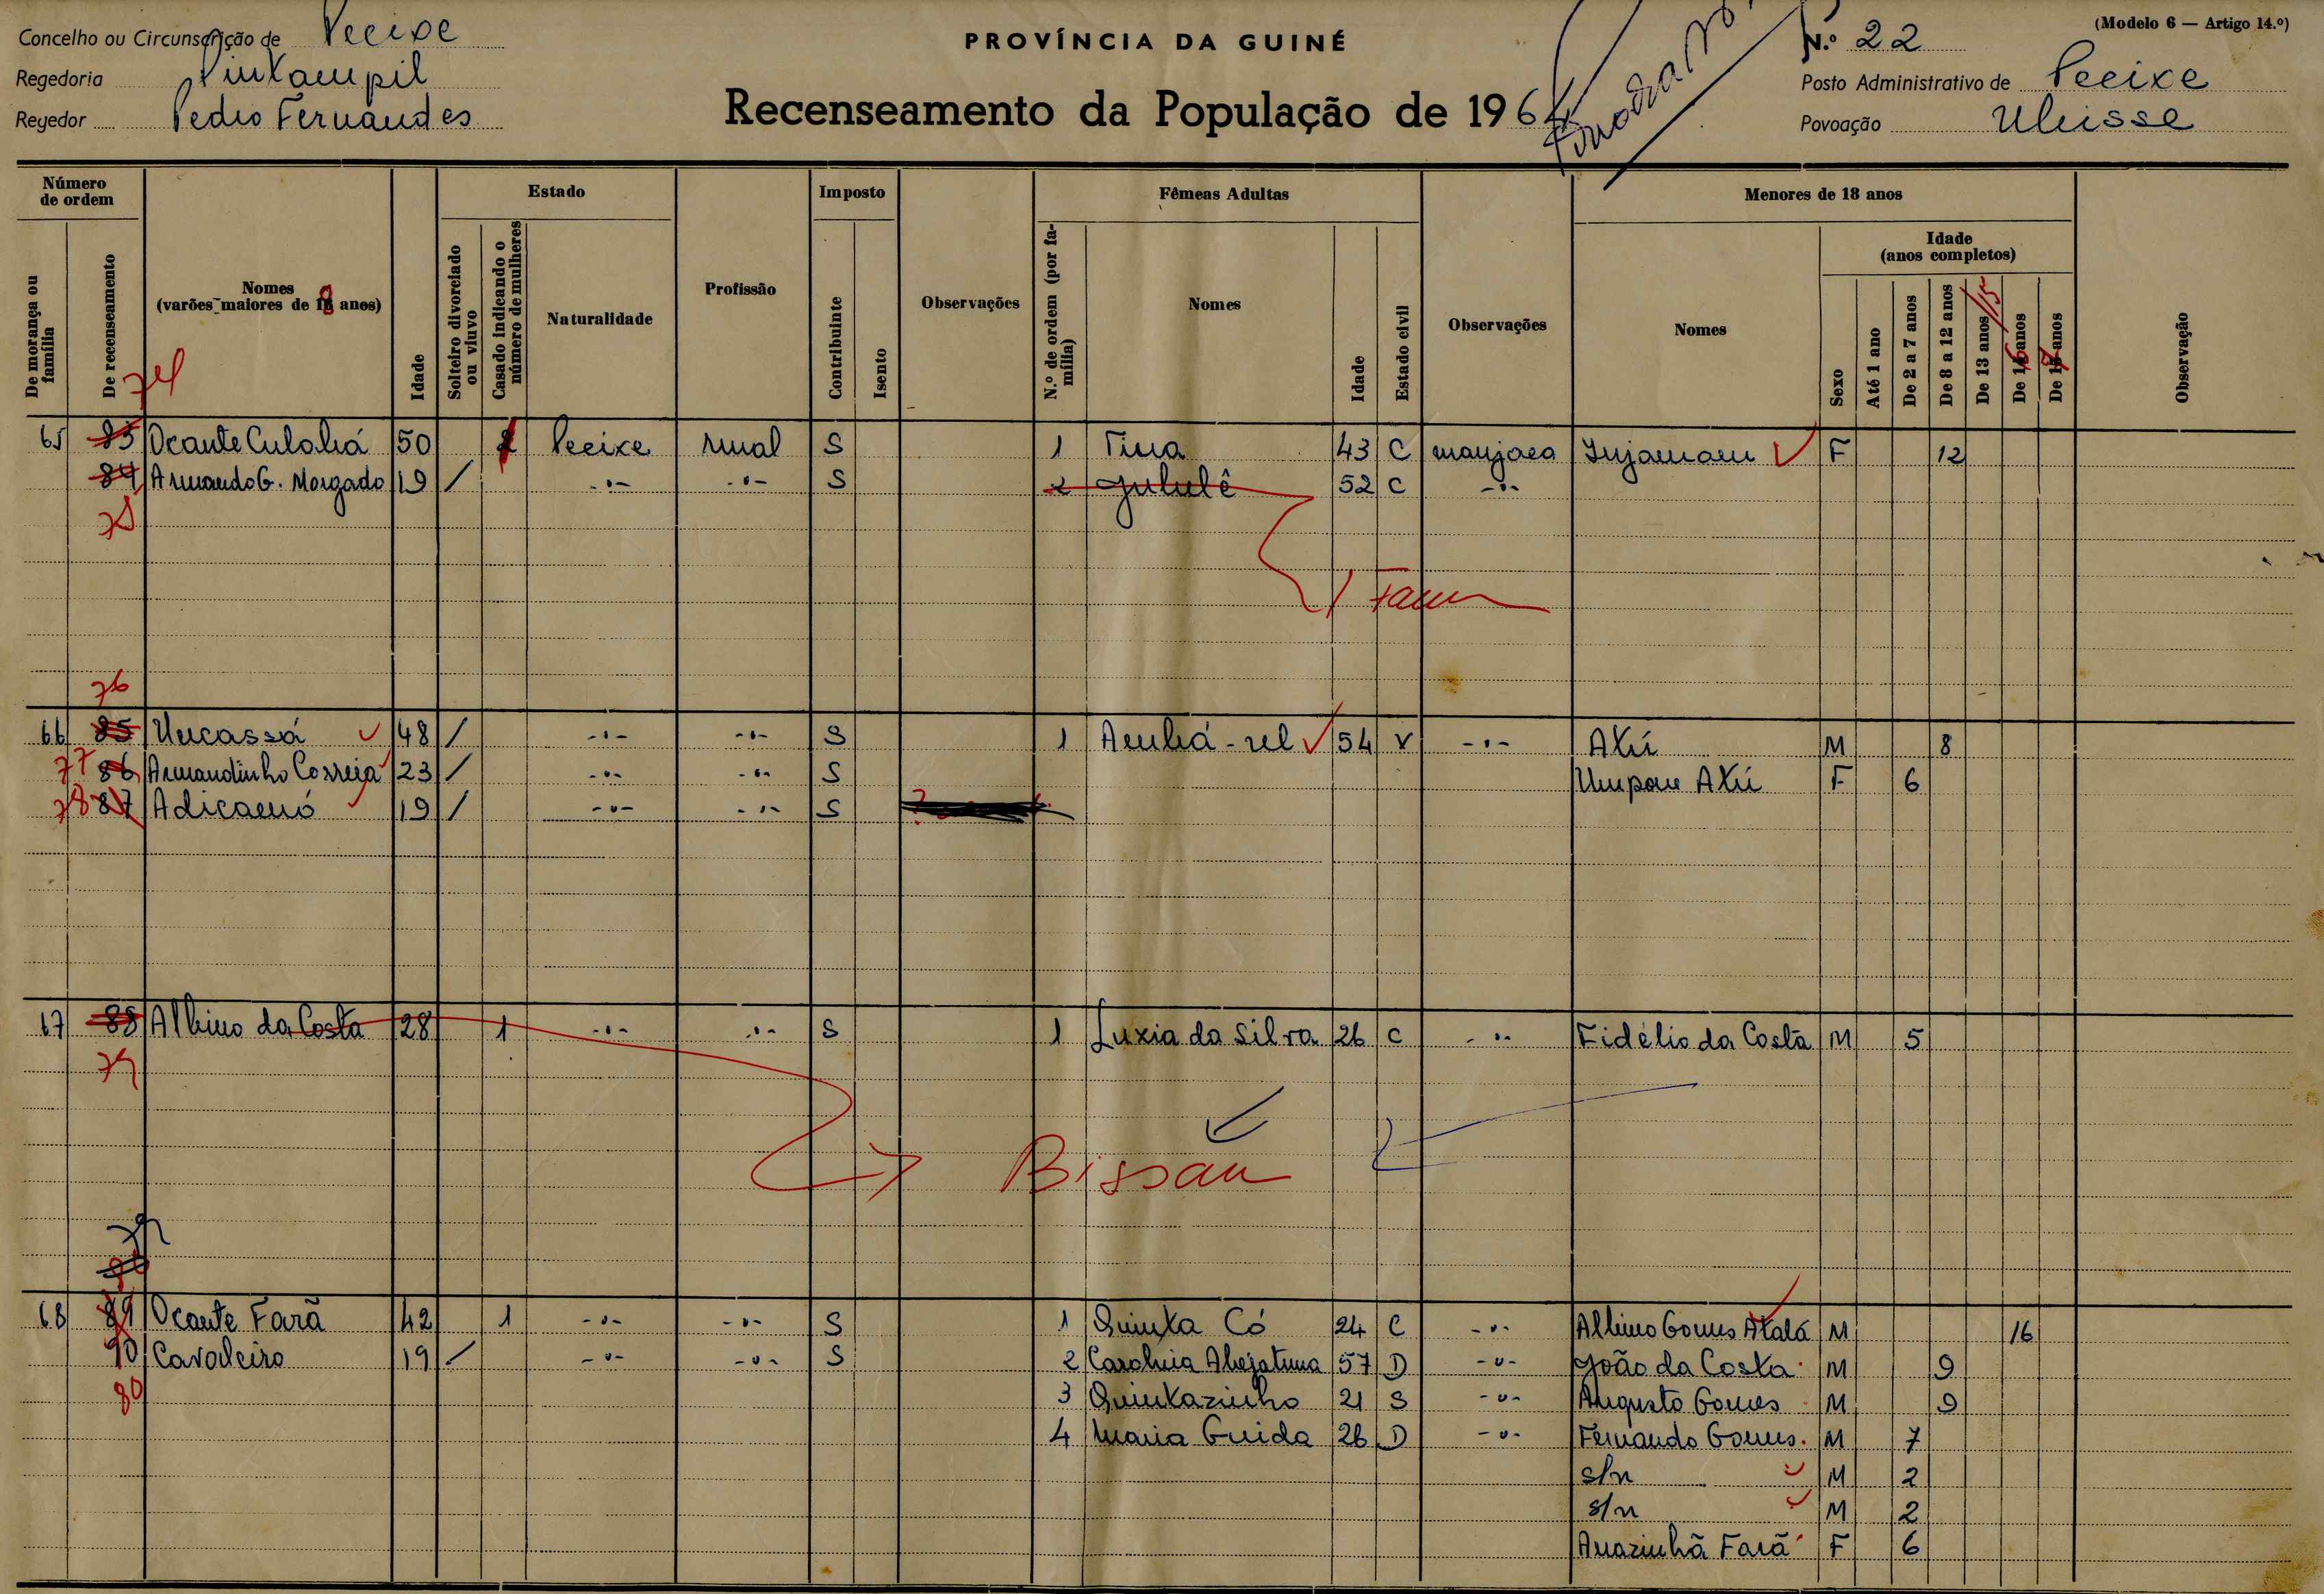 Concelho ou Circunscrição de Pecixe
Regedoria Pintampil
Regedor Pedro Fernandes
PROVÍNCIA DA GUINÉ
Recenseamento da População de 196
(Modelo 6 — Artigo 14.º)
N.º 22
Posto Administrativo de Pecixe
Povoação
Número de ordem
De morança ou família
De recenseamento
Nomes (varões maiores de 18 anos)
Idade
Estado
Solteiro divorciado ou viuvo
Casado indicando o número de mulheres
Naturalidade
Profissão
Imposto
Contribuinte
Isento
Observações
Fêmeas Adultas
N.º de ordem (por família)
Nomes
Idade
Estado civil
Observações
Menores de 18 anos
Nomes
Sexo
Idade (anos completos)
Até 1 ano
De 2 a 7 anos
De 8 a 12 anos
De 13 anos /15
De 16 anos
De anos
Observação
74
65 83 Ocante 50 Pecixe rural S 1 Tina 43 C manjaca F 12
84 Armando G. Morgado 19 / -"- -"- S 2 Jululê 52 C -"-
75
76
66 85 Uncassá 48 / -"- -"- S 1 54 V -"- M 8
77 86 Armandinho Correia 23 / -"- -"- S F 6
78 87 19 / -"- -"- S
67 88 Albino da Costa 28 1 -"- -"- S 1 Luzia da Silva 26 C -"- Fidélio da Costa M 5
79
Bissau
68 89 Ocante Farã 42 1 -"- -"- S 1 Quinta Có 24 C -"- Albino Gomes M 16
90 Cavaleiro 19 / -"- -"- S 2 57 D -"- João da Costa M 9
80 3 Quintazinho 21 S -"- Augusto Gomes M 9
4 Maria Guida 26 D -"- Fernando Gomes M 7
s/n M 2
s/n M 2
Anazinhã Farã F 6